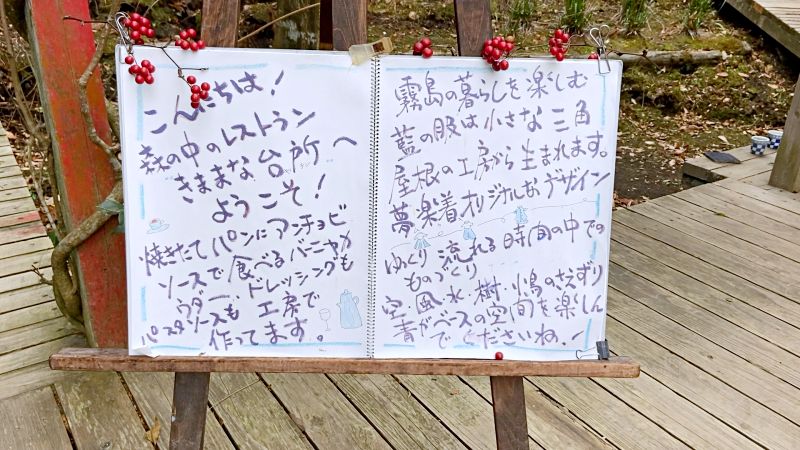 こんにちは!
森の中のレストラン
きままな台所へ
ようこそ!
焼きたてパンにアンチョビ
ソースで食べるバーニャカ
ウダー・ドレッシングも
パスタソースも工房で
作ってます。
霧島の暮らしを楽しむ
藍の服は小さな三角
屋根の工房から生まれます。
夢楽着オリジナルなデザイン
ゆっくり流れる時間の中での
ものづくり
空・風・水・樹・小鳥のさえずり
青がベースの空間を楽しん
でくださいね!